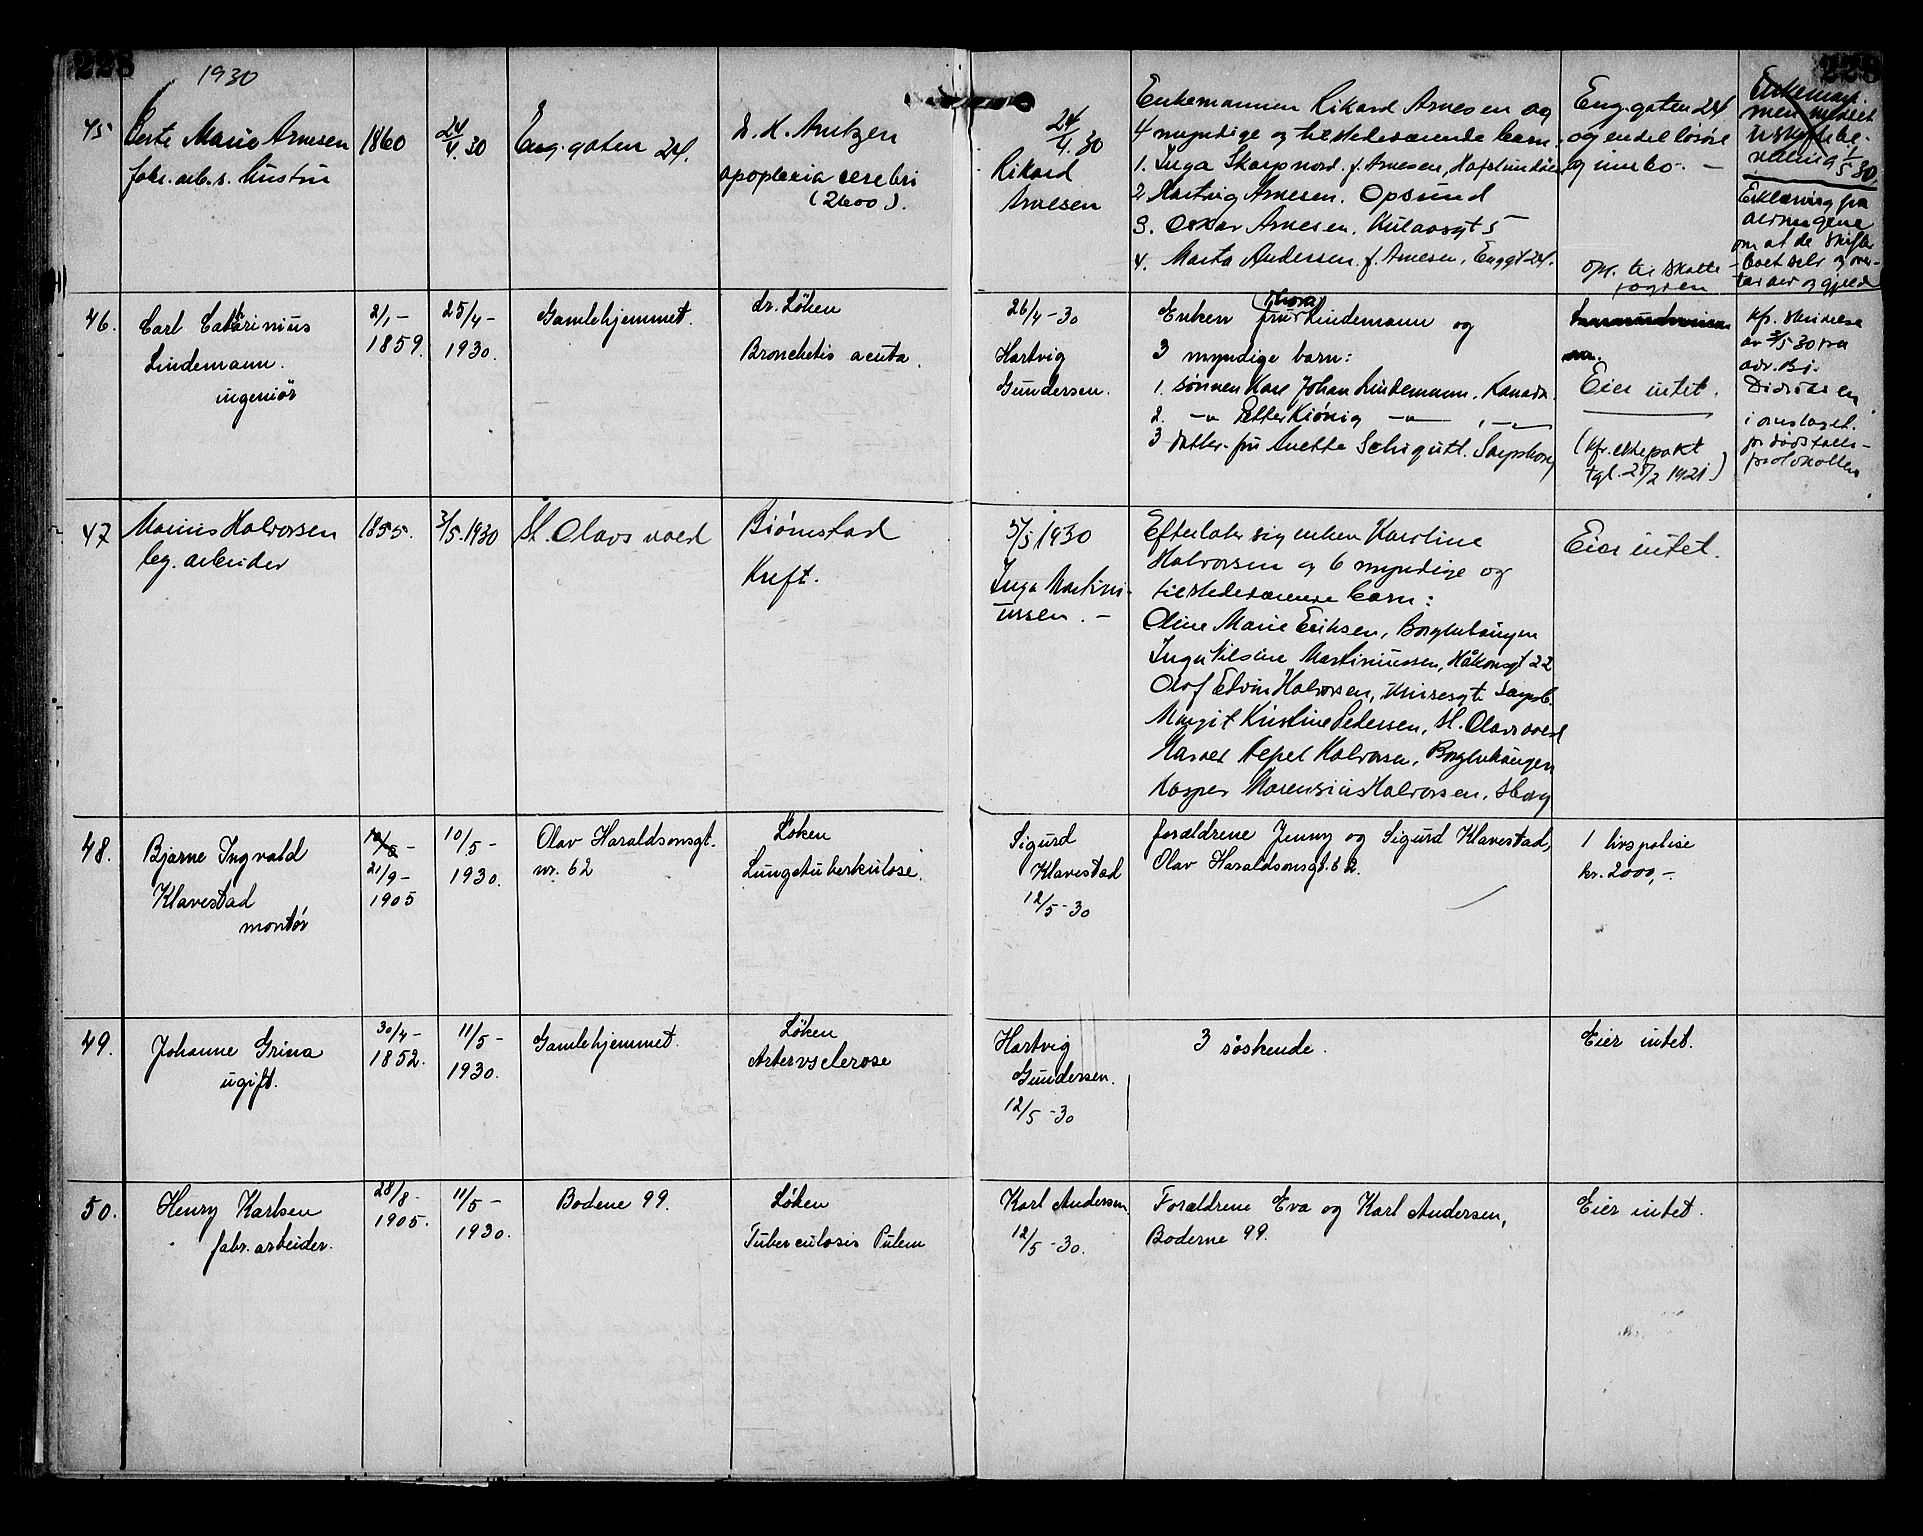 228
1930
228
45
Berte Marie Arnesen
fabr. arb. s. hustru
1860
24/4. 30
Eng. gaten 24.
D. K. Arntzen
apoplexia cerebri
(2600).
24/4. 30
Rikard
Arnesen
Enkemannen Rikard Arnesen og
4 myndige og tilstedeværende barn.
1. Inga Skarpnord. f. Arnesen, Hafslundsøen
2. Hartvig Arnesen. Opsund
3. Oskar Arnesen. Kulaasgt 5
4. Marta Andersen. f. Arnesen, Enggt 24.
Eng. gaten 24
og endel løsøre
og innbo. —
opg. til skatte-
fogden
Enkeman-
nen meddelt
uskiftebe-
villing 1/5 30
Erklæring fra
arvingene
om at de skifter
boet selv og over-
tar arv og gjeld
46.
Carl Catarinius
Lindemann.
ingeniør
2/1 -
1859.
25/4 -
1930.
Gamlehjemmet.
dr. Løken
Bronchitis acuta.
26/4 - 30
Hartvig
Gundersen.
Enken fru (Thora) Lindemann og
3 myndige barn:
1. sønnen Karl Johan Lindemann. Kanada.
2. -"- Etter Kiønig -"- , -"-
3 datter. fru Anetta Schiqutt. Sarpsborg
Eier intet.
(kfr. ektepakt
tgl. 25/2 1921)
Kfr. skrivelse
av 2/5 30 fra
adv. Bj.
Didriksen
i omslaget.
for dødsfalls-
protokollen
47
Marius Halvorsen
leg. arbeider
1855.
3/5. 1930
St. Olavs vold
Bjørnstad
Kreft.
5/5 1930
Inga Martini-
ussen. -
Efterlater sig enken Karoline
Halvorsen og 6 myndige og
tilstedeværende barn:
Oline Marie Eriksen, Borghuhaugen
Inga Nilsine Martiniussen, Håkonsgt 22
Olaf Edvin Halvorsen, Kirkesgt. Sarpsb.
Margit Kristine Pedersen, St. Olavs vold
Harald Halvorsen, Borghuhaugen
Kasper Marensius Halvorsen, Sborg
48.
Bjarne Ingvald
Klavestad
montør
10/5 -
21/9 -
1905
10/5 -
1930.
Olav Haraldsonsgt.
nr. 62
Løken
Lungetuberkulose.
Sigurd
Klavestad
12/5 - 30
forældrene Jenny og Sigurd Klavestad,
Olav Haraldsonsgt. 62.
1 livspolise
kr. 2000,-.
49.
Johanne Grina
ugift.
30/4 -
1852.
11/5 -
1930.
Gamlehjemmet.
Løken
Artervsclerose
Hartvig
Gundersen.
12/5 - 30
3 søskende.
Eier intet.
50.
Henry Karlsen
fabr. arbeider.
28/8 -
1905.
11/5 -
1930.
Bodene 99.
Løken
Tuberculosis Pulem
Karl Andersen.
12/5 - 30.
Forældrene Eva og Karl Andersen,
Boderne 99.
Eier intet.